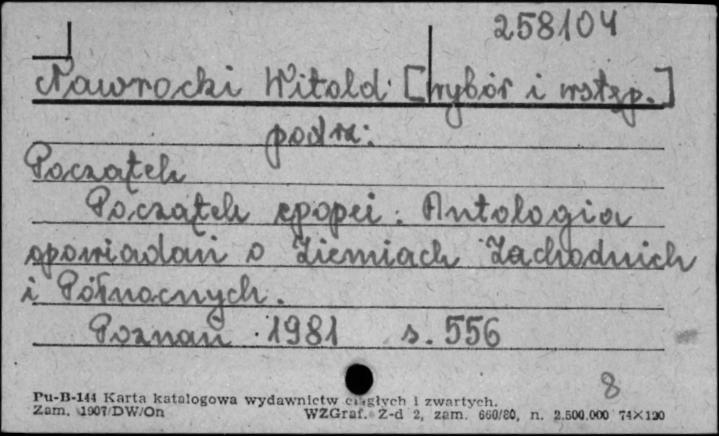 258104
Nawrocki Witold [wybór i wstęp.]
podrz:
Początek
Początek epopei. Antologia
opowiadań o Ziemiach Zachodnich
i Północnych.
Poznań 1981 s. 556
8
Pu-B-144 Karta katalogowa wydawnictw ciągłych i zwartych.
Zam. 1907/DW/On WZGraf. Z-d 2, zam. 660/80, n. 2.500.000 74×120